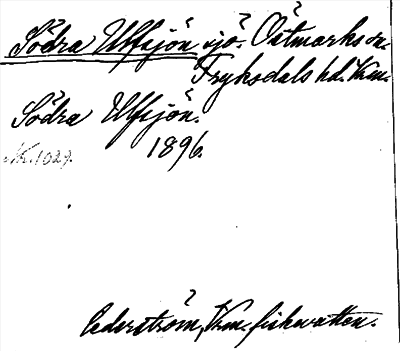 Södra Ulfsjön sjö. Östmarks sn.
Fryksdals hd. Vrm.
Södra Ulfsjön.
1896.
NK. 1029.
Cederström, Vrm. fiskevatten.